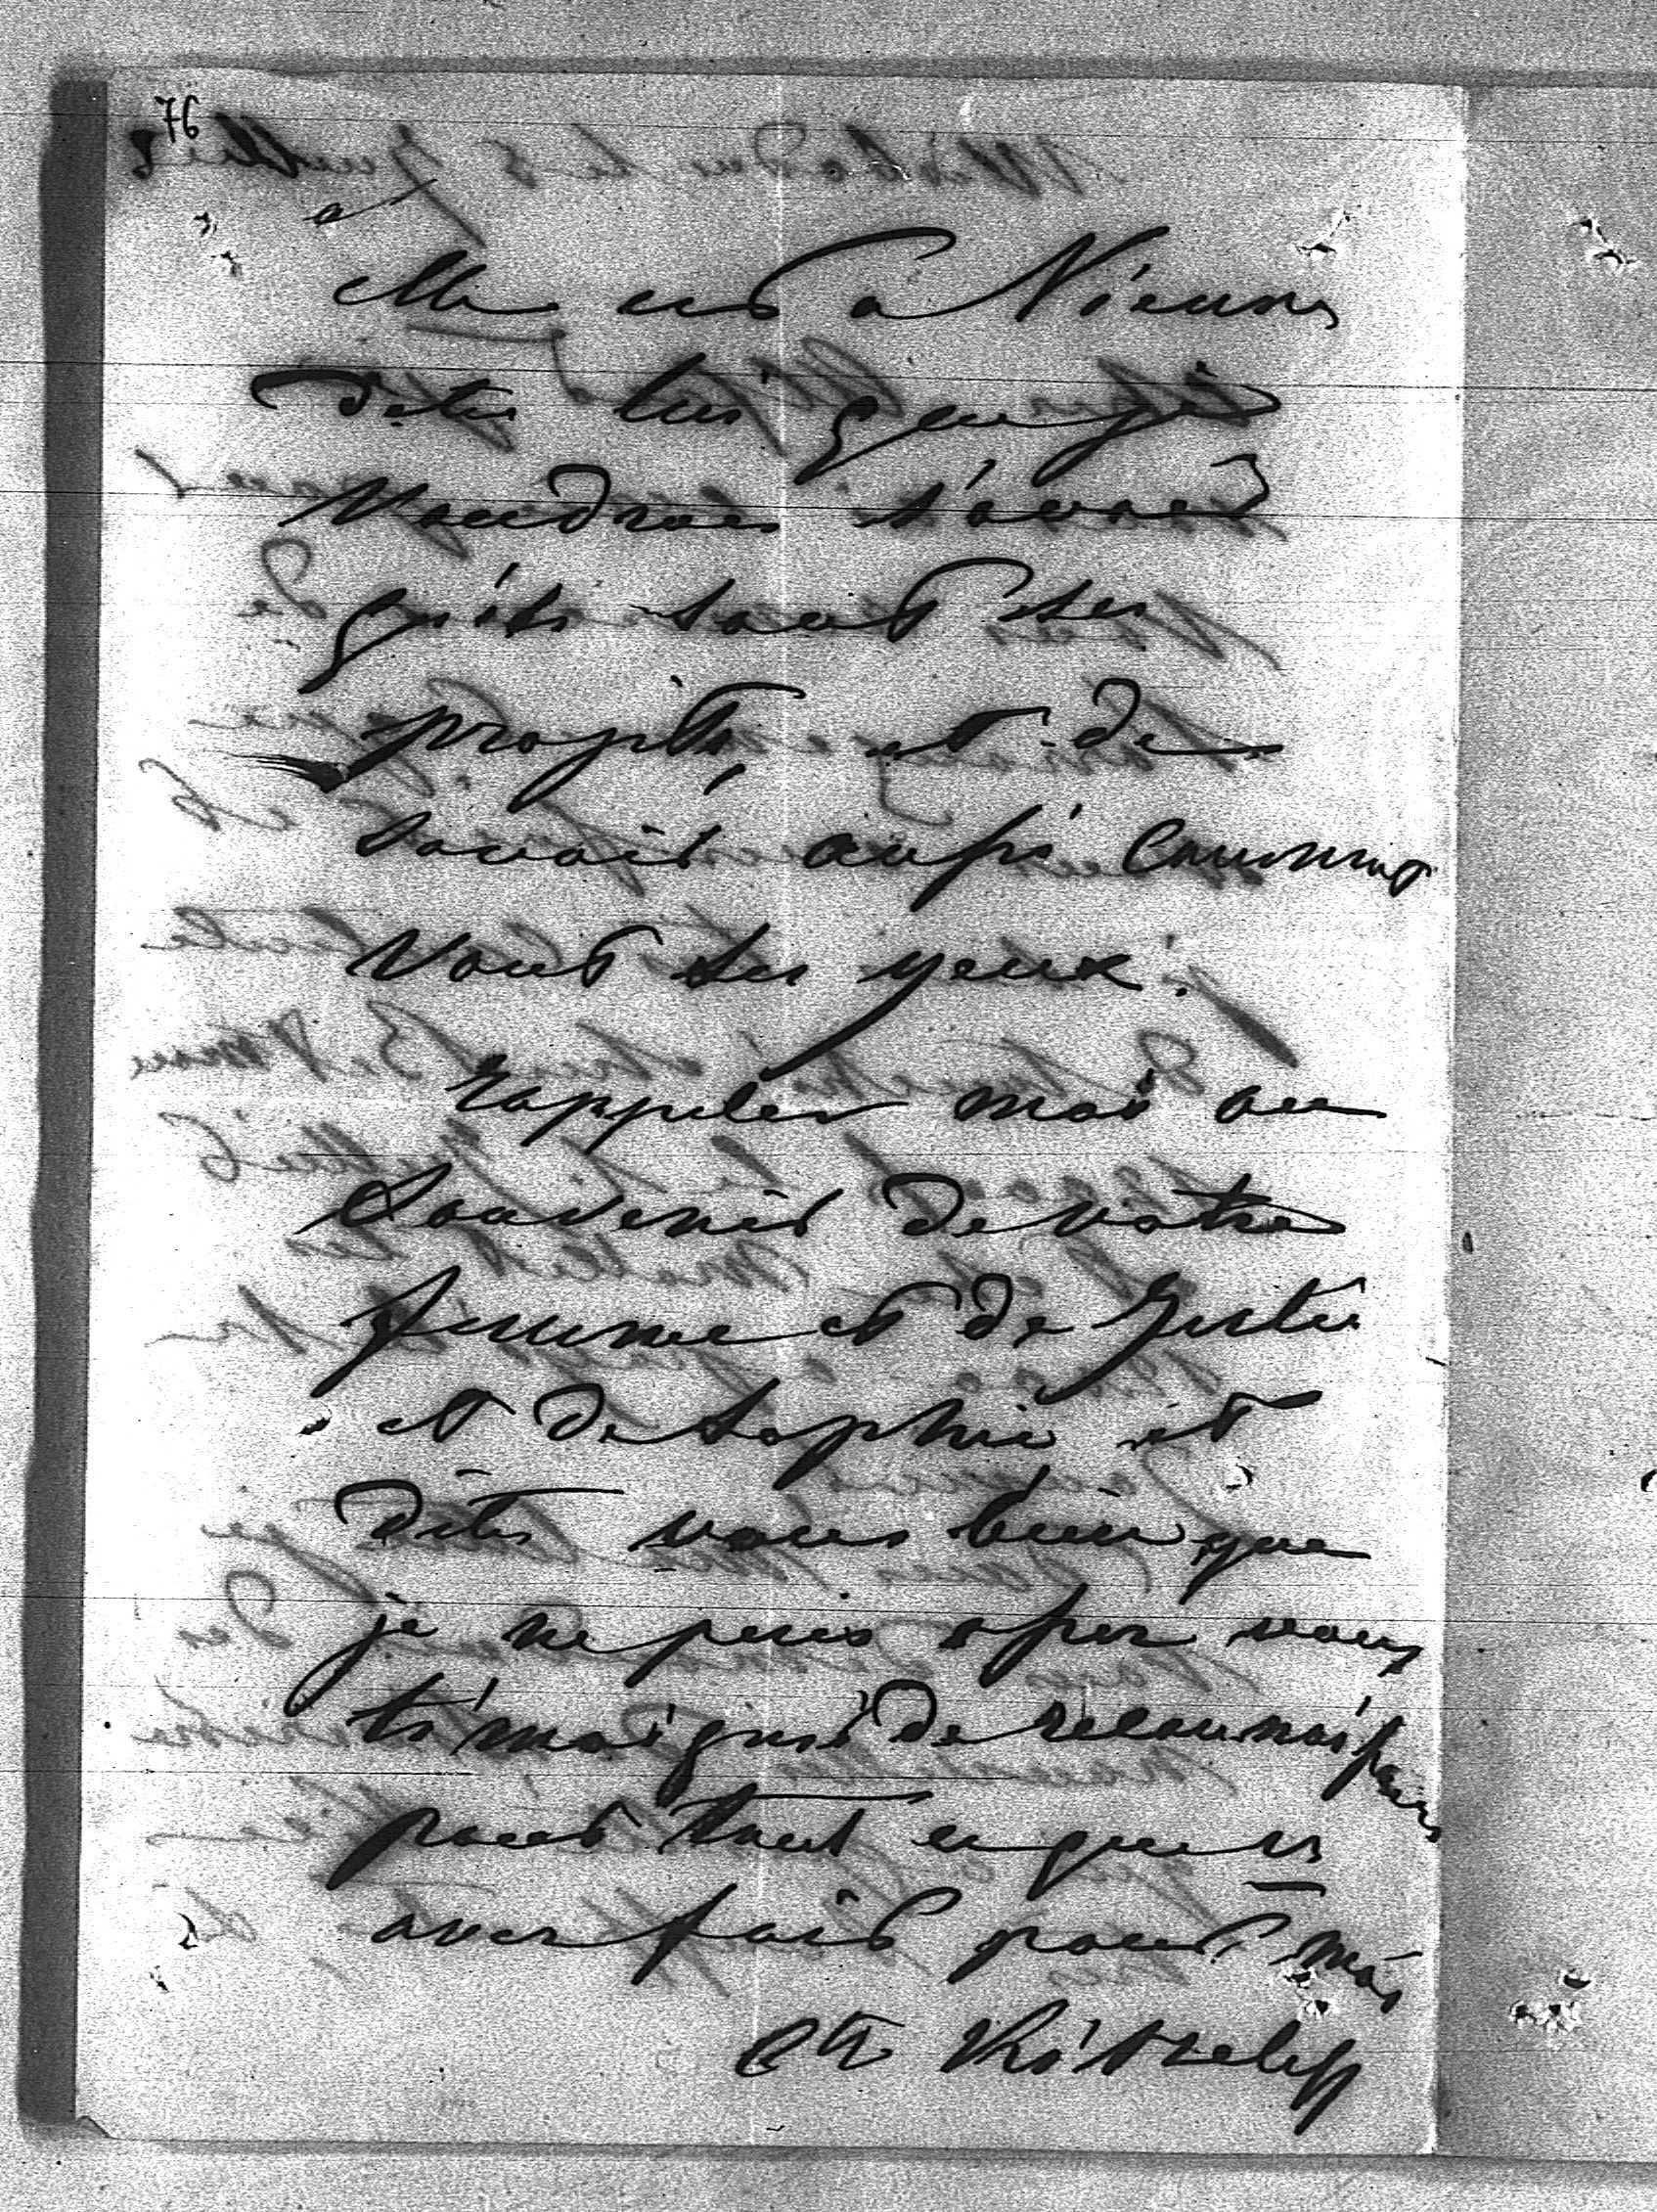 76
est à Vienne
dites lui que je
voudrais savoir
quels sont ses
projets et de
savoir aussi comment
vont ses yeux.
Rappelez moi au
souvenir de votre
femme et de
et de Sophie et
dites vous bien que
je ne puis assez vous
témoigner de reconnaissance
pour tout ce que vs
avez fait pour moi